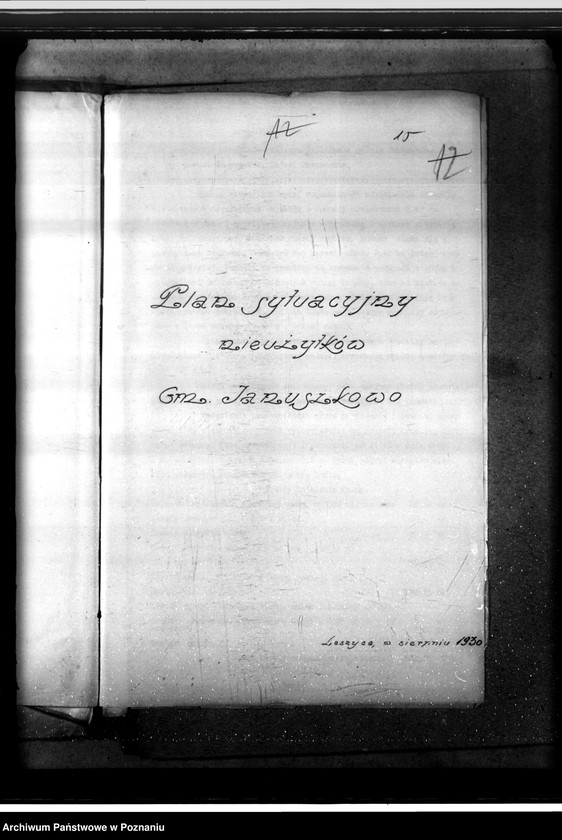 12
15
12
Plan sytuacyjny
nieużytków
Gm. Januszkowo
w sierpniu 1930
Archiwum Państwowe w Poznaniu